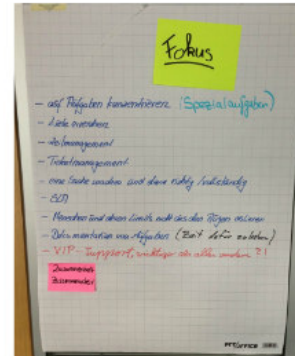 Fokus
- auf Aufgaben konzentrieren (Spezialaufgaben)
- Ziele erreichen
- Zeitmanagement
- Ticketmanagement
- eine Sache machen und diese richtig / vollständig
- 
- Menschen und deren Limits nicht aus den Augen verlieren
- Dokumentation von Aufgaben (Zeit dafür nehmen)
- VIP-Support, wichtiger als alles andere ?!